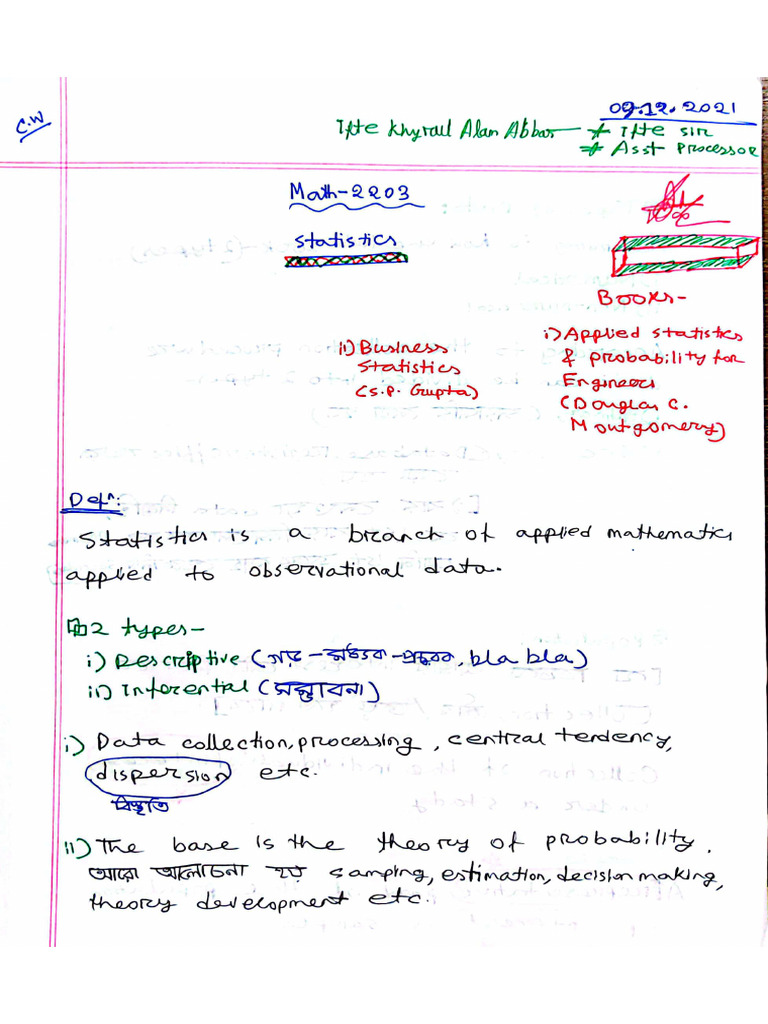 C.W
09.12.2021
Ifte Khyrall Alam Abbar → * Ifte sir
* Asst Processor
Math-2203
Statistics
Books-
i) Applied statistics
& probability for
Engineers
(Douglas C.
Montgomery)
ii) Business
Statistics
(S.P. Gupta)
Defⁿ:
Statistics is a branch of applied mathematics
applied to observational data.
2 types-
i) Descriptive (গড়--, bla bla)
ii) Inferental (সম্ভাবনা)
i) Data collection, processing, central tendency,
dispersion etc.
বিস্তৃতি
ii) The base is the theory of probability.
আরো আলোচনা হয় samping, estimation, decision making,
theory development etc.